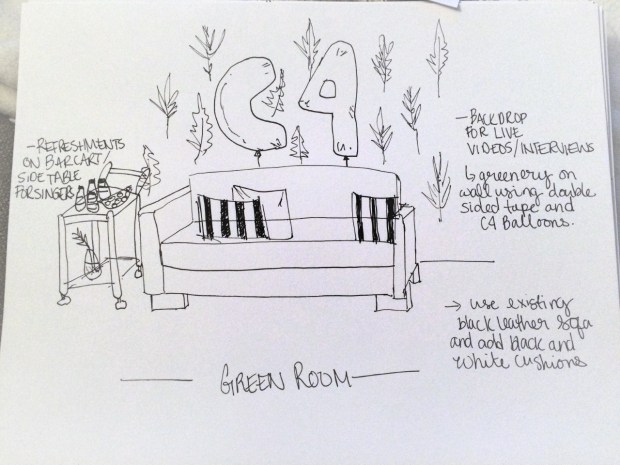 C4
-REFRESHMENTS
ON BARCART/
SIDE TABLE
FOR SINGERS
-BACKDROP
FOR LIVE
VIDEOS/INTERVIEWS
↳ greenery on
wall using double
sided tape and
C4 Balloons.
→ use existing
black leather sofa
and add black and
white cushions
GREEN ROOM